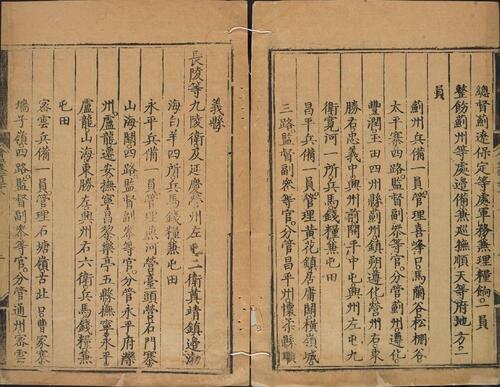 總督薊遼保定等處軍務兼理糧餉一員
整飭薊州等處邊備兼巡撫順天等府地方一
員
薊州兵備一員管理喜峰口馬蘭谷松棚谷
太平寨四路監督副叅等官分管薊州遵化
豐潤玉田四州縣薊州鎮朔遵化營州右東
勝右忠義中興州前開平中屯興州左屯九
衛寬河一所兵馬錢糧兼屯田
昌平兵備一員管理黃花鎮居庸關橫嶺城
三路監督副叅等官分管昌平州懷柔縣順
義縣
長陵等九陵衛及延慶營州左屯二衛眞靖鎮邊渤
海白羊四所兵馬錢糧兼屯田
永平兵備一員管理燕河營臺頭營石門寨
山海關四路監督副叅等官分管永平府灤
州盧龍遷安撫寧昌黎樂亭五縣撫寧永平
盧龍山海東勝左興州右六衛兵馬錢糧兼
屯田
密雲兵備一員管理石塘嶺古北口曹家寨
墻子嶺四路監督副叅等官分管通州密雲